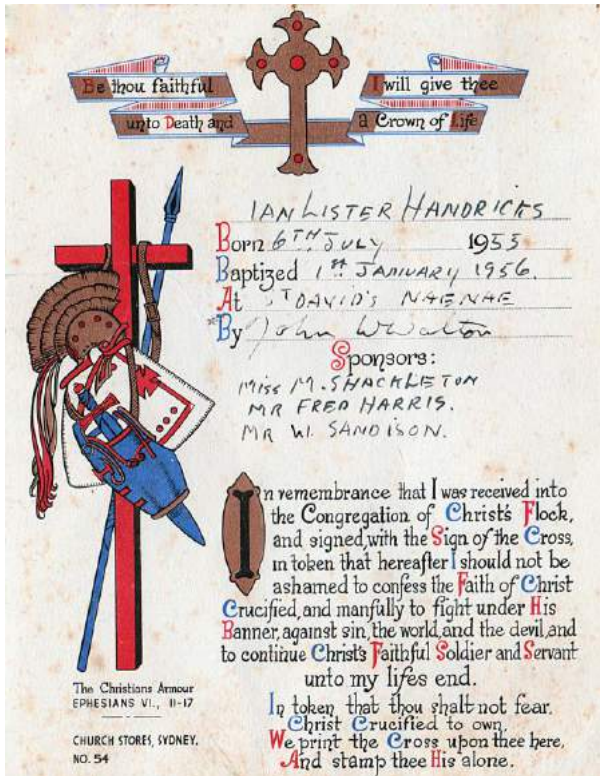 Be thou faithful
unto Death and
I will give thee
a Crown of Life
IAN LISTER HANDRICKS
Born 6TH JULY 1955
Baptized 1ST JANUARY 1956.
At ST DAVID'S NAENAE
By John W Walton
Sponsors:
MISS M. SHACKLETON
MR FRED HARRIS.
MR W. SANDISON.
In remembrance that I was received into
the Congregation of Christ's Flock,
and signed, with the Sign of the Cross,
in token that hereafter I should not be
ashamed to confess the Faith of Christ
Crucified, and manfully to fight under His
Banner, against sin, the world, and the devil, and
to continue Christ's Faithful Soldier and Servant
unto my lifes end.
In token that thou shalt not fear,
Christ Crucified to own,
We print the Cross upon thee here,
And stamp thee His alone.
The Christians Armour
EPHESIANS VI., 11-17
CHURCH STORES, SYDNEY.
NO. 54